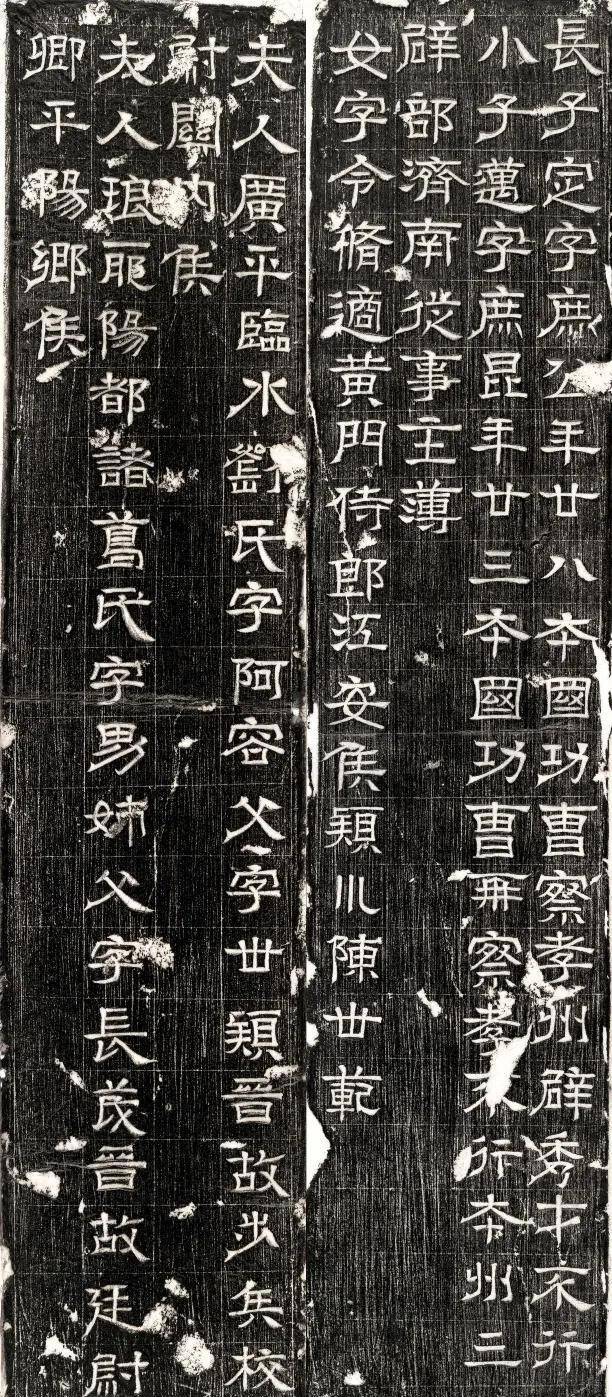 長子定字庶公年廿八本國功曹察孝州辟秀才不行
小子邁字庶昆年廿三本國功曹再察孝不行本州三
辟部濟南從事主薄
女字令脩適黃門侍郎江安侯潁川陳世範
夫人廣平臨水劉氏字阿容父字世穎晉故步兵校
尉關內侯
夫人琅耶陽都諸葛氏字男姊父字長茂晉故廷尉
卿平陽鄉侯